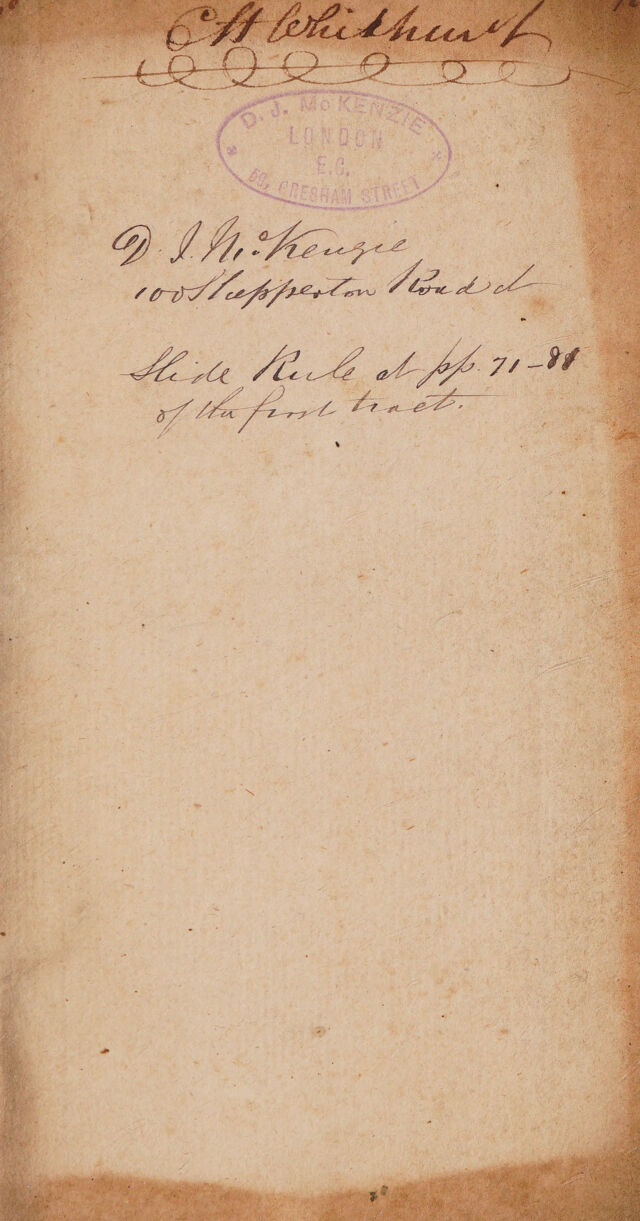 C H Whitehurst
D. J. McKENZIE
LONDON
E.C.
GRESHAM STREET
D. J. McKenzie
100 Shepperton Road
Slide Rule at pp. 71-88
of the first tract.